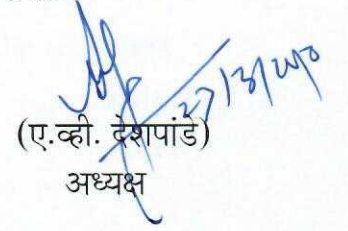 27/3/2020
(ए.व्ही. देशपांडे)
अध्यक्ष